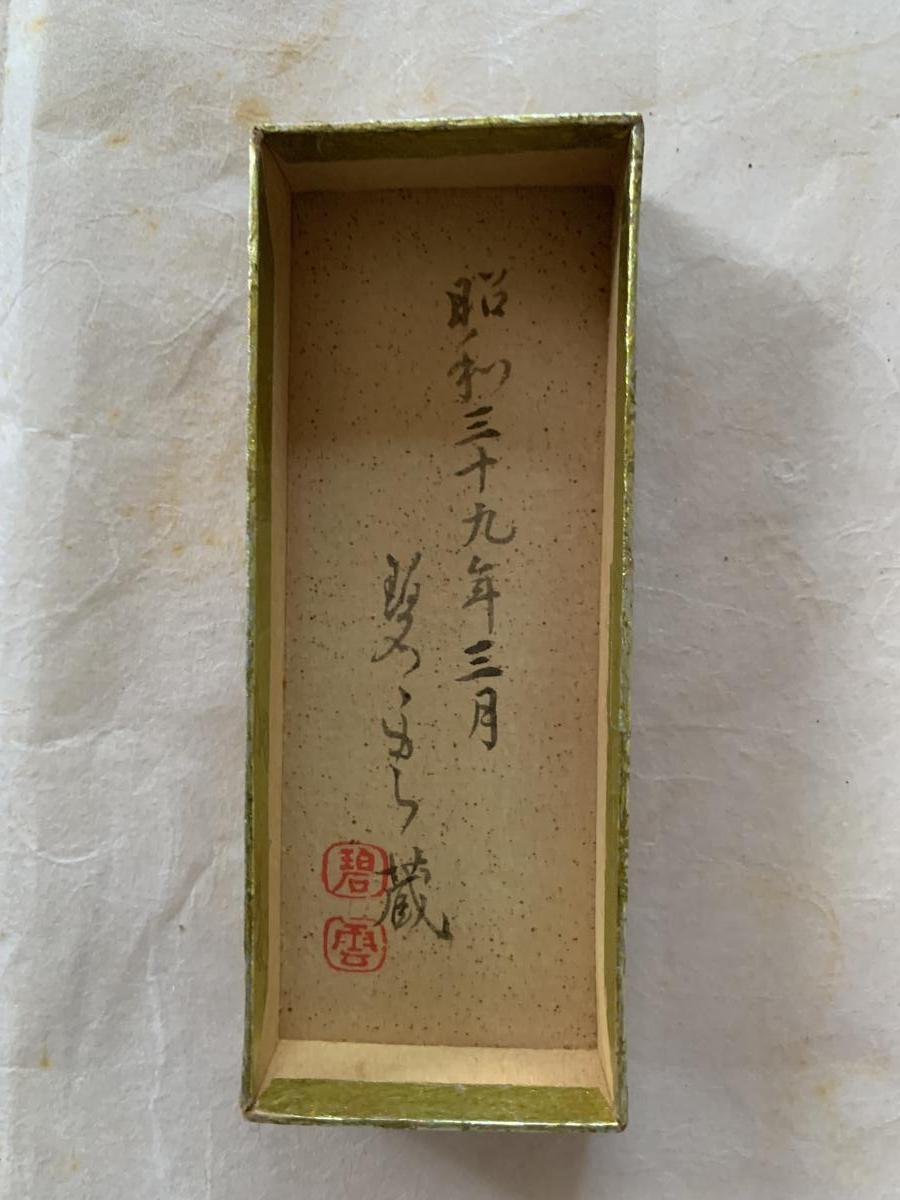 昭和三十九年三月
碧雲蔵
碧
雲